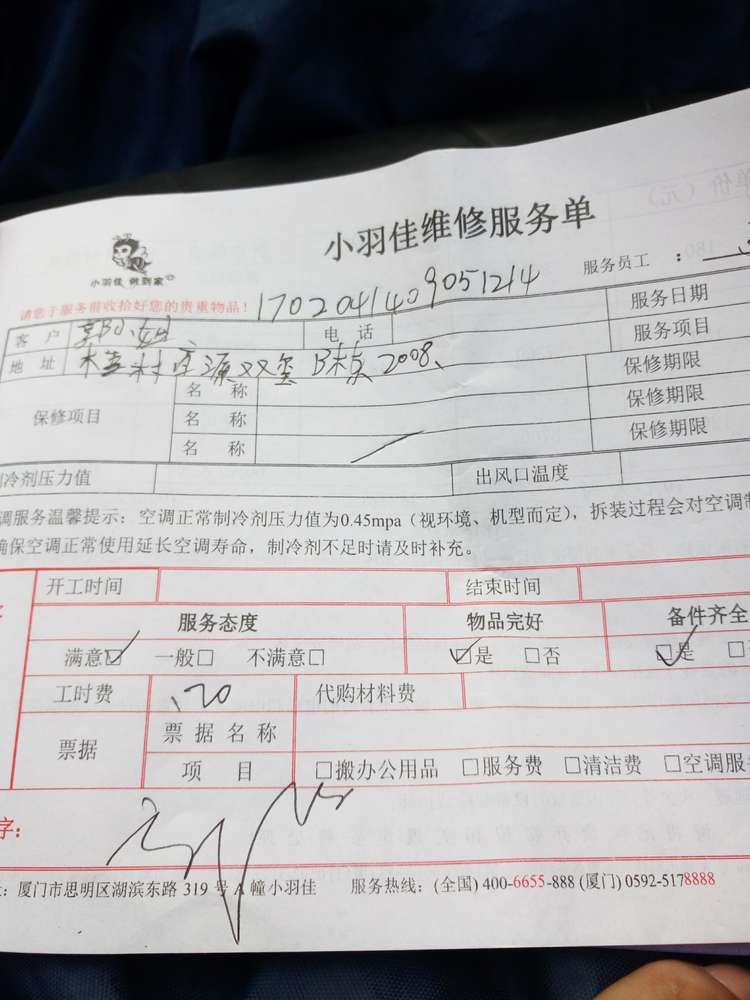 小羽佳维修服务单
小羽佳 做到家
服务员工 ：
请您于服务前收拾好您的贵重物品！ 1702041409051214
客 户 小姐 电 话 服务日期
地 址 村 源双玺 B栋 2008 服务项目
保修项目 名 称 保修期限
名 称 保修期限
名 称 保修期限
制冷剂压力值 出风口温度
调服务温馨提示：空调正常制冷剂压力值为0.45mpa（视环境、机型而定），拆装过程会对空调制
确保空调正常使用延长空调寿命，制冷剂不足时请及时补充。
开工时间 结束时间
服务态度 物品完好 备件齐全
满意☑ 一般□ 不满意□ ☑是 □否 ☑是 □
工时费 120 代购材料费
票据 票 据 名 称
项 目 □搬办公用品 □服务费 □清洁费 □空调服
字：
：厦门市思明区湖滨东路 319 号 A 幢小羽佳 服务热线：(全国) 400-6655-888 (厦门) 0592-5178888